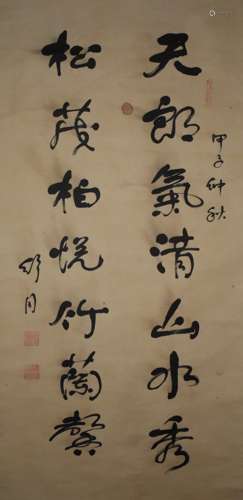 甲子仲秋
天朗氣清山水秀
松茂柏悅竹蘭馨
舒同